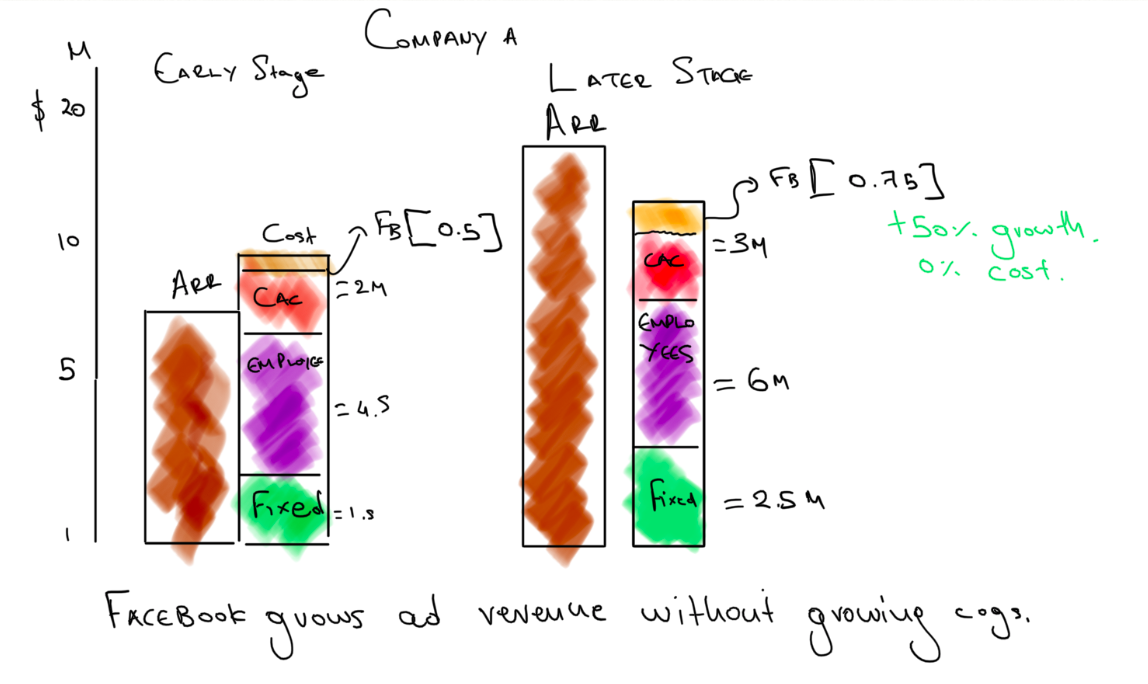 COMPANY A
M
$ 20
10
5
1
EARLY Stage
ARR
Cost
FB [0.5]
CAC
= 2M
EMPLOIEE
= 4.5
Fixed
= 1.5
LATER STAGE
ARR
FB [0.75]
+50% growth.
0% cost.
CAC
= 3M
EMPLO
YEES
= 6M
Fixed
= 2.5M
FACEBOOK grows ad revenue without growing cogs.